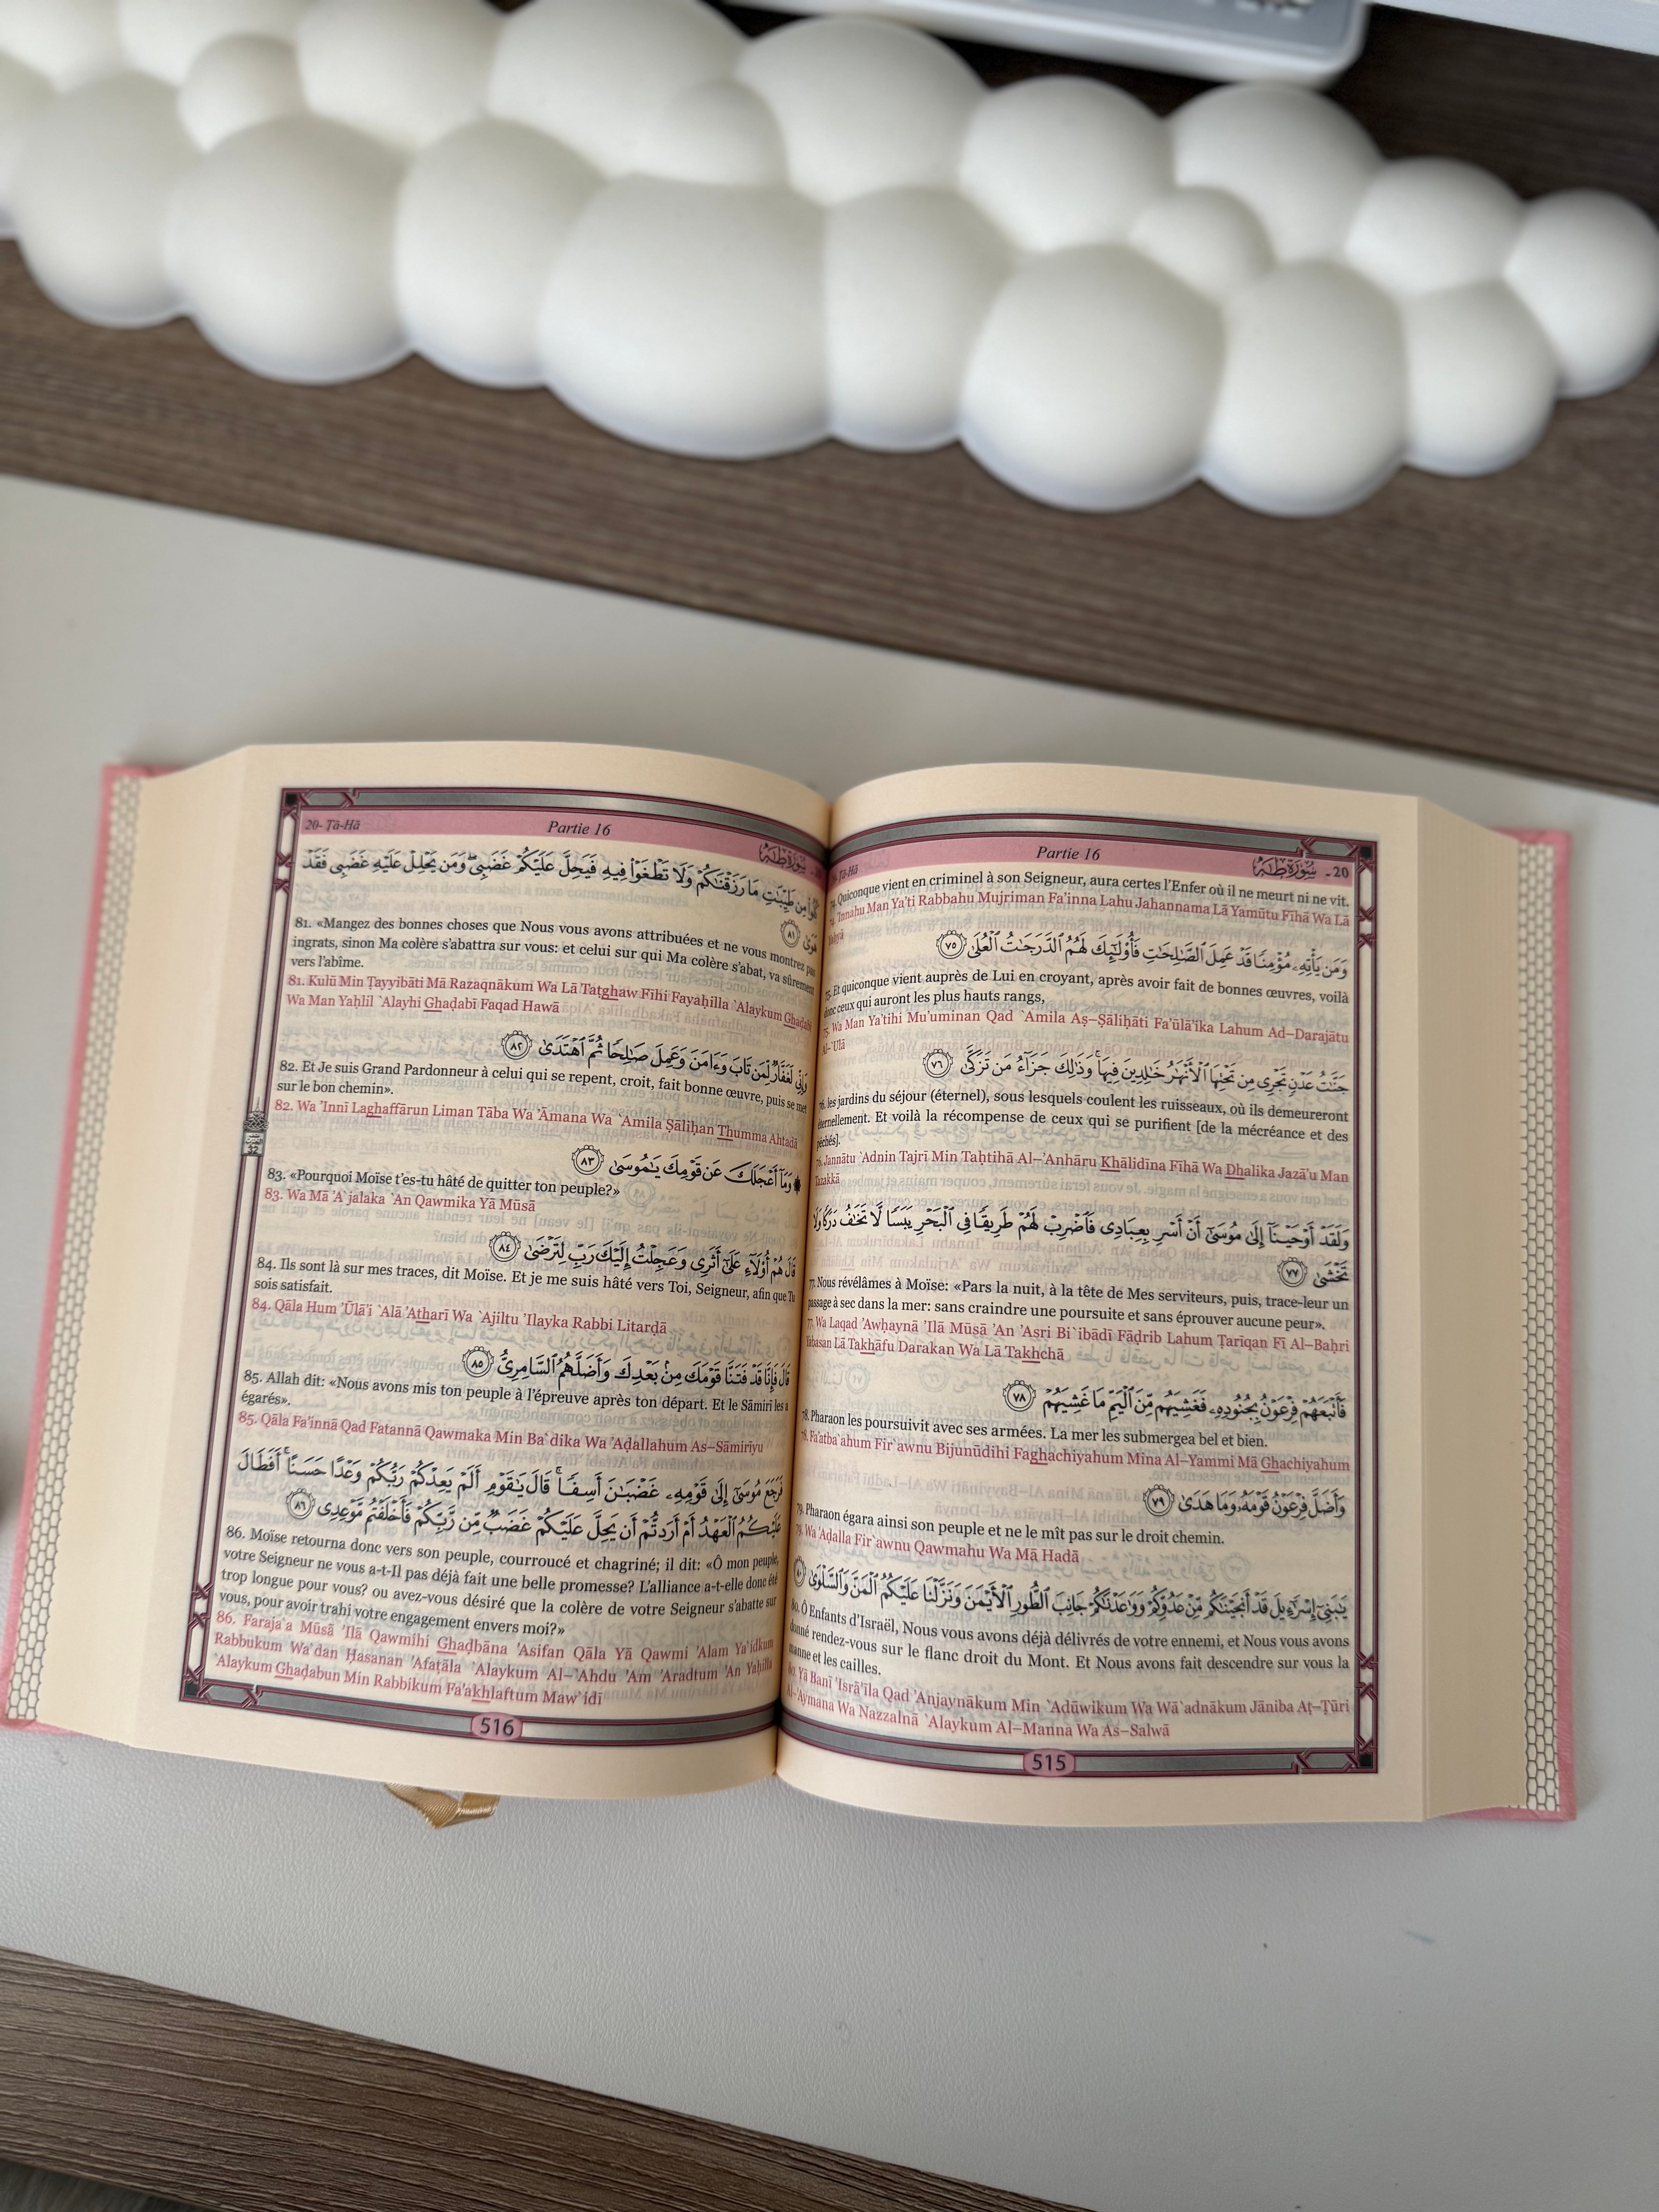 20- Ṭā-Hā
Partie 16
سورة طه - 20
74. Quiconque vient en criminel à son Seigneur, aura certes l'Enfer où il ne meurt ni ne vit.
74. 'Innahu Man Ya'ti Rabbahu Mujriman Fa'inna Lahu Jahannama Lā Yamūtu Fīhā Wa Lā
Yaḥyā
وَمَن يَأْتِهِۦ مُؤْمِنًا قَدْ عَمِلَ ٱلصَّـٰلِحَـٰتِ فَأُو۟لَـٰٓئِكَ لَهُمُ ٱلدَّرَجَـٰتُ ٱلْعُلَىٰ ٧٥
75. Et quiconque vient auprès de Lui en croyant, après avoir fait de bonnes œuvres, voilà
donc ceux qui auront les plus hauts rangs,
75. Wa Man Ya'tihi Mu'uminan Qad `Amila Aṣ–Ṣāliḥāti Fa'ūlā'ika Lahum Ad–Darajātu
Al–`Ulā
جَنَّـٰتُ عَدْنٍ تَجْرِى مِن تَحْتِهَا ٱلْأَنْهَـٰرُ خَـٰلِدِينَ فِيهَا ۚ وَذَٰلِكَ جَزَآءُ مَن تَزَكَّىٰ ٧٦
76. les jardins du séjour (éternel), sous lesquels coulent les ruisseaux, où ils demeureront
éternellement. Et voilà la récompense de ceux qui se purifient [de la mécréance et des
péchés].
76. Jannātu `Adnin Tajrī Min Taḥtihā Al–'Anhāru Khālidīna Fīhā Wa Dhalika Jazā'u Man
Tazakkā
وَلَقَدْ أَوْحَيْنَآ إِلَىٰ مُوسَىٰٓ أَنْ أَسْرِ بِعِبَادِى فَٱضْرِبْ لَهُمْ طَرِيقًا فِى ٱلْبَحْرِ يَبَسًا لَّا تَخَـٰفُ دَرَكًا وَلَا
تَخْشَىٰ ٧٧
77. Nous révélâmes à Moïse: «Pars la nuit, à la tête de Mes serviteurs, puis, trace-leur un
passage à sec dans la mer: sans craindre une poursuite et sans éprouver aucune peur».
77. Wa Laqad 'Awḥaynā 'Ilā Mūsā 'An 'Asri Bi`ibādī Fāḍrib Lahum Ṭarīqan Fī Al–Baḥri
Yabasan Lā Takhāfu Darakan Wa Lā Takhchā
فَأَتْبَعَهُمْ فِرْعَوْنُ بِجُنُودِهِۦ فَغَشِيَهُم مِّنَ ٱلْيَمِّ مَا غَشِيَهُمْ ٧٨
78. Pharaon les poursuivit avec ses armées. La mer les submergea bel et bien.
78. Fa'atba`ahum Fir`awnu Bijunūdihi Faghachiyahum Mina Al–Yammi Mā Ghachiyahum
وَأَضَلَّ فِرْعَوْنُ قَوْمَهُۥ وَمَا هَدَىٰ ٧٩
79. Pharaon égara ainsi son peuple et ne le mît pas sur le droit chemin.
79. Wa 'Aḍalla Fir`awnu Qawmahu Wa Mā Hadā
يَـٰبَنِىٓ إِسْرَٰٓءِيلَ قَدْ أَنجَيْنَـٰكُم مِّنْ عَدُوِّكُمْ وَوَٰعَدْنَـٰكُمْ جَانِبَ ٱلطُّورِ ٱلْأَيْمَنَ وَنَزَّلْنَا عَلَيْكُمُ ٱلْمَنَّ وَٱلسَّلْوَىٰ ٨٠
80. Ô Enfants d'Israël, Nous vous avons déjà délivrés de votre ennemi, et Nous vous avons
donné rendez-vous sur le flanc droit du Mont. Et Nous avons fait descendre sur vous la
manne et les cailles.
80. Yā Banī 'Isrā'īla Qad 'Anjaynākum Min `Adūwikum Wa Wā`adnākum Jāniba Aṭ–Ṭūri
Al–'Aymana Wa Nazzalnā `Alaykum Al–Manna Wa As–Salwā
515
20- Ṭā-Hā
Partie 16
سورة طه
كُلُوا۟ مِن طَيِّبَـٰتِ مَا رَزَقْنَـٰكُمْ وَلَا تَطْغَوْا۟ فِيهِ فَيَحِلَّ عَلَيْكُمْ غَضَبِى ۖ وَمَن يَحْلِلْ عَلَيْهِ غَضَبِى فَقَدْ
هَوَىٰ ٨١
81. «Mangez des bonnes choses que Nous vous avons attribuées et ne vous montrez pas
ingrats, sinon Ma colère s'abattra sur vous: et celui sur qui Ma colère s'abat, va sûrement
vers l'abîme.
81. Kulū Min Ṭayyibāti Mā Razaqnākum Wa Lā Tatghaw Fīhi Fayaḥilla `Alaykum Ghaḍabī
Wa Man Yaḥlil `Alayhi Ghaḍabī Faqad Hawā
وَإِنِّى لَغَفَّارٌ لِّمَن تَابَ وَءَامَنَ وَعَمِلَ صَـٰلِحًا ثُمَّ ٱهْتَدَىٰ ٨٢
82. Et Je suis Grand Pardonneur à celui qui se repent, croit, fait bonne œuvre, puis se met
sur le bon chemin».
82. Wa 'Innī Laghaffārun Liman Tāba Wa 'Āmana Wa `Amila Ṣāliḥan Thumma Ahtadá
32
۞ وَمَآ أَعْجَلَكَ عَن قَوْمِكَ يَـٰمُوسَىٰ ٨٣
83. «Pourquoi Moïse t'es-tu hâté de quitter ton peuple?»
83. Wa Mā 'A`jalaka `An Qawmika Yā Mūsā
قَالَ هُمْ أُو۟لَآءِ عَلَىٰٓ أَثَرِى وَعَجِلْتُ إِلَيْكَ رَبِّ لِتَرْضَىٰ ٨٤
84. Ils sont là sur mes traces, dit Moïse. Et je me suis hâté vers Toi, Seigneur, afin que Tu
sois satisfait.
84. Qāla Hum 'Ūlā'i `Alā 'Atharī Wa `Ajiltu 'Ilayka Rabbi Litarḍā
قَالَ فَإِنَّا قَدْ فَتَنَّا قَوْمَكَ مِنۢ بَعْدِكَ وَأَضَلَّهُمُ ٱلسَّامِرِىُّ ٨٥
85. Allah dit: «Nous avons mis ton peuple à l'épreuve après ton départ. Et le Sāmirī les a
égarés».
85. Qāla Fa'innā Qad Fatannā Qawmaka Min Ba`dika Wa 'Aḍallahum As–Sāmirīyu
فَرَجَعَ مُوسَىٰٓ إِلَىٰ قَوْمِهِۦ غَضْبَـٰنَ أَسِفًا ۚ قَالَ يَـٰقَوْمِ أَلَمْ يَعِدْكُمْ رَبُّكُمْ وَعْدًا حَسَنًا ۚ أَفَطَالَ
عَلَيْكُمُ ٱلْعَهْدُ أَمْ أَرَدتُّمْ أَن يَحِلَّ عَلَيْكُمْ غَضَبٌ مِّن رَّبِّكُمْ فَأَخْلَفْتُم مَّوْعِدِى ٨٦
86. Moïse retourna donc vers son peuple, courroucé et chagriné; il dit: «Ô mon peuple,
votre Seigneur ne vous a-t-Il pas déjà fait une belle promesse? L'alliance a-t-elle donc été
trop longue pour vous? ou avez-vous désiré que la colère de votre Seigneur s'abatte sur
vous, pour avoir trahi votre engagement envers moi?»
86. Faraja`a Mūsā 'Ilā Qawmihi Ghaḍbāna 'Asifan Qāla Yā Qawmi 'Alam Ya`idkum
Rabbukum Wa`dan Ḥasanan 'Afaṭāla `Alaykum Al–`Ahdu 'Am 'Aradtum 'An Yaḥilla
`Alaykum Ghaḍabun Min Rabbikum Fa'akhlaftum Maw`idī
516